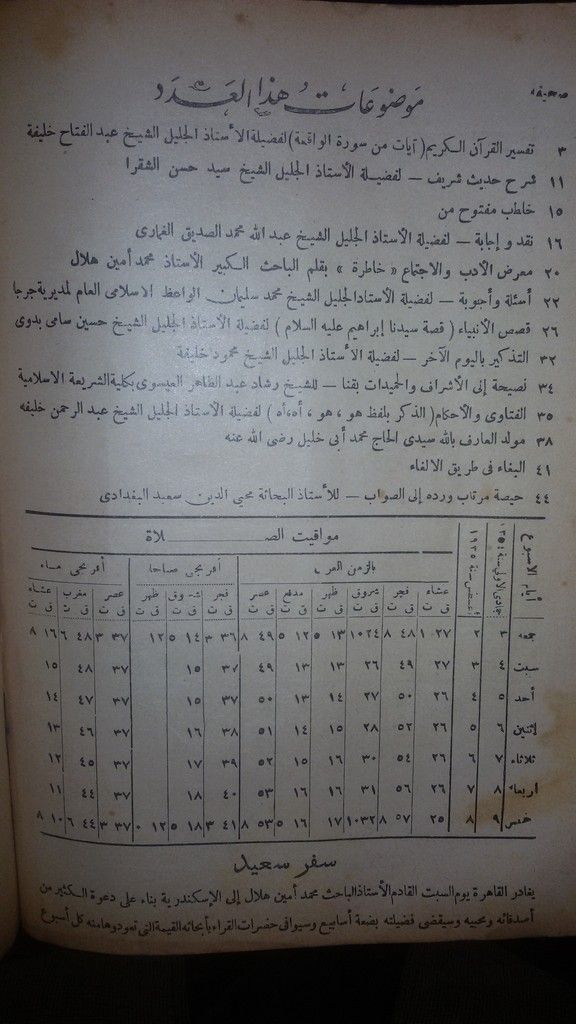 صحيفة
موضوعات هذا العدد
٣ تفسير القرآن الكريم (آيات من سورة الواقعة) لفضيلة الأستاذ الجليل الشيخ عبد الفتاح خليفة
١١ شرح حديث شريف — لفضيلة الأستاذ الجليل الشيخ سيد حسن الشقرا
١٥ خاطب مفتوح من
١٦ نقد وإجابة — لفضيلة الأستاذ الجليل الشيخ عبد الله محمد الصديق الغمارى
٢٠ معرض الأدب والاجتماع « خاطرة » بقلم الباحث الكبير الأستاذ محمد أمين هلال
٢٢ أسئلة وأجوبة — لفضيلة الأستاذ الجليل الشيخ محمد سليمان الواعظ الاسلامى العام لمديرية جرجا
٢٦ قصص الأنبياء ( قصة سيدنا إبراهيم عليه السلام ) لفضيلة الأستاذ الجليل الشيخ حسين سامى بدوى
٣٢ التذكير باليوم الآخر — لفضيلة الأستاذ الجليل الشيخ محمود خليفة
٣٤ نصيحة إلى الأشراف والحميدات بقنا — للشيخ رشاد عبد الظاهر العيسوى بكلية الشريعة الاسلامية
٣٥ الفتاوى والأحكام ( الذكر بلفظ هو ، هو ، أه، أه ) لفضيلة الأستاذ الجليل الشيخ عبد الرحمن خليفه
٣٨ مولد العارف بالله سيدى الحاج محمد أبى خليل رضى الله عنه
٤١ البغاء فى طريق الالغاء
٤٤ حيصة مرتاب ورده إلى الصواب — للأستاذ البحاثة محيى الدين سعيد البغدادى
أيام الاسبوع جمادى الاولى سنة ١٣٥٤ أغسطس سنة ١٩٣٥ مواقيت الصلاة
بالزمن العربى أفرنجى صباحا أفرنجى مساء
عشاء فجر شروق ظهر مدفع عصر فجر شروق ظهر عصر مغرب عشاء
ق ت ق ت ق ت ق ت ق ت ق ت ق ت ق ت ق ت ق ت ق ت ق ت
جمعه ٣ ٢ ٢٧ ١ ٤٨ ٨ ٢٤ ١٠ ١٣ ٥ ١٢ ٥ ٤٩ ٨ ٣٦ ٣ ١٤ ٥ ١٢ ٣٧ ٣ ٤٨ ٦ ١٦ ٨
سبت ٤ ٣ ٢٧ ٤٩ ٢٦ ١٣ ١٣ ٤٩ ٣٧ ١٥ ٣٧ ٤٨ ١٥
أحد ٥ ٤ ٢٦ ٥٠ ٢٧ ١٤ ١٣ ٥٠ ٣٧ ١٥ ٣٧ ٤٧ ١٤
إثنين ٦ ٥ ٢٦ ٥٢ ٢٨ ١٥ ١٤ ٥١ ٣٨ ١٦ ٣٧ ٤٦ ١٣
ثلاثاء ٧ ٦ ٢٦ ٥٤ ٣٠ ١٦ ١٥ ٥٢ ٣٩ ١٧ ٣٧ ٤٥ ١٢
أربعاء ٨ ٧ ٢٦ ٥٦ ٣١ ١٦ ١٦ ٥٣ ٤٠ ١٨ ٣٧ ٤٤ ١١
خميس ٩ ٨ ٢٥ ٥٧ ٨ ٣٢ ١٠ ١٧ ١٦ ٥ ٥٣ ٨ ٤١ ٣ ١٨ ٥ ١٢ ٠ ٣٧ ٣ ٤٤ ٦ ١٠ ٨
سفر سعيد
يغادر القاهرة يوم السبت القادم الأستاذ الباحث محمد أمين هلال إلى الإسكندرية بناء على دعوة الكثير من
أصدقائه ومحبيه وسيقضى فضيلته بضعة أسابيع وسيوافى حضرات القراء بأبحاثه القيمة التى تعودوها منه كل أسبوع